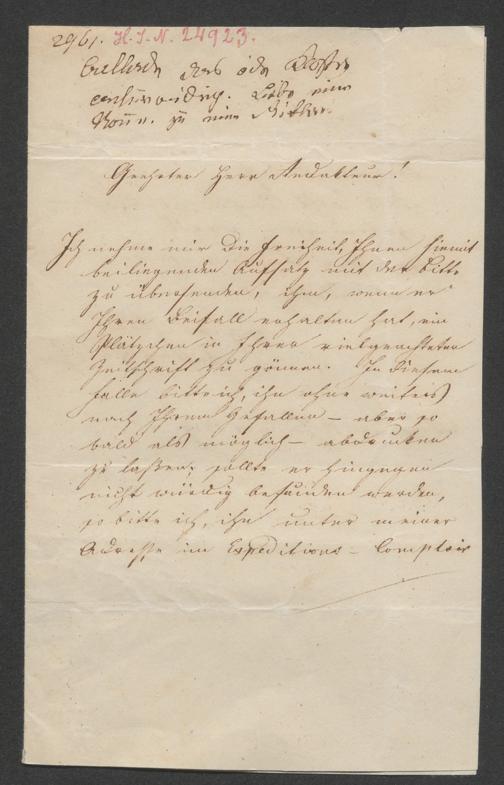 2961. H. I. N. 24923.
Geehrter Herr Redakteur!
Ich nehme mir die Freiheit, Ihnen hiemit
beiliegenden Aufsatz mit der Bitte
zu übersenden, ihm, wenn er
Ihren Beifall erhalten hat, ein
Plätzchen in Ihrer vielgeachteten
Zeitschrift zu gönnen. In diesem
Falle bitte ich, ihn ohne weiters
nach Ihrem Gefallen – aber so
bald als möglich – abdrucken
zu laßen; sollte er hingegen
nicht würdig befunden werden,
so bitte ich, ihn unter meiner
Adresse im Expeditions-Comptoir